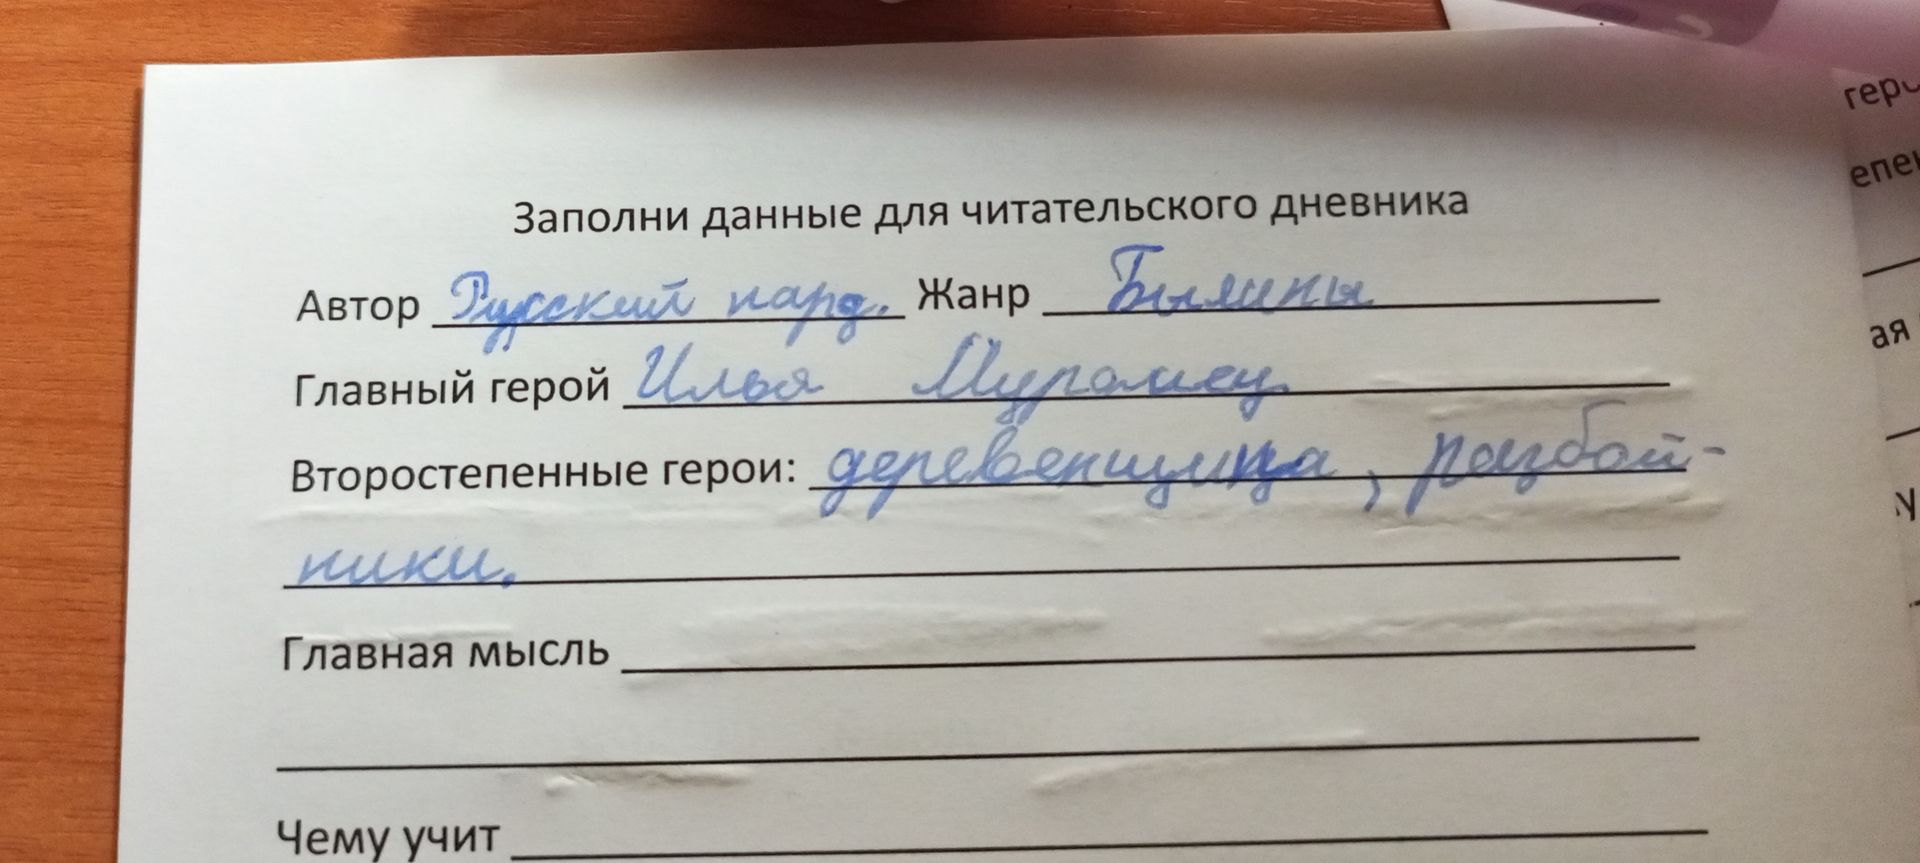 Заполни данные для читательского дневника
Автор Русский народ. Жанр Былины
Главный герой Илья Муромец.
Второстепенные герои: деревенщина, разбой-
ники.
Главная мысль
Чему учит